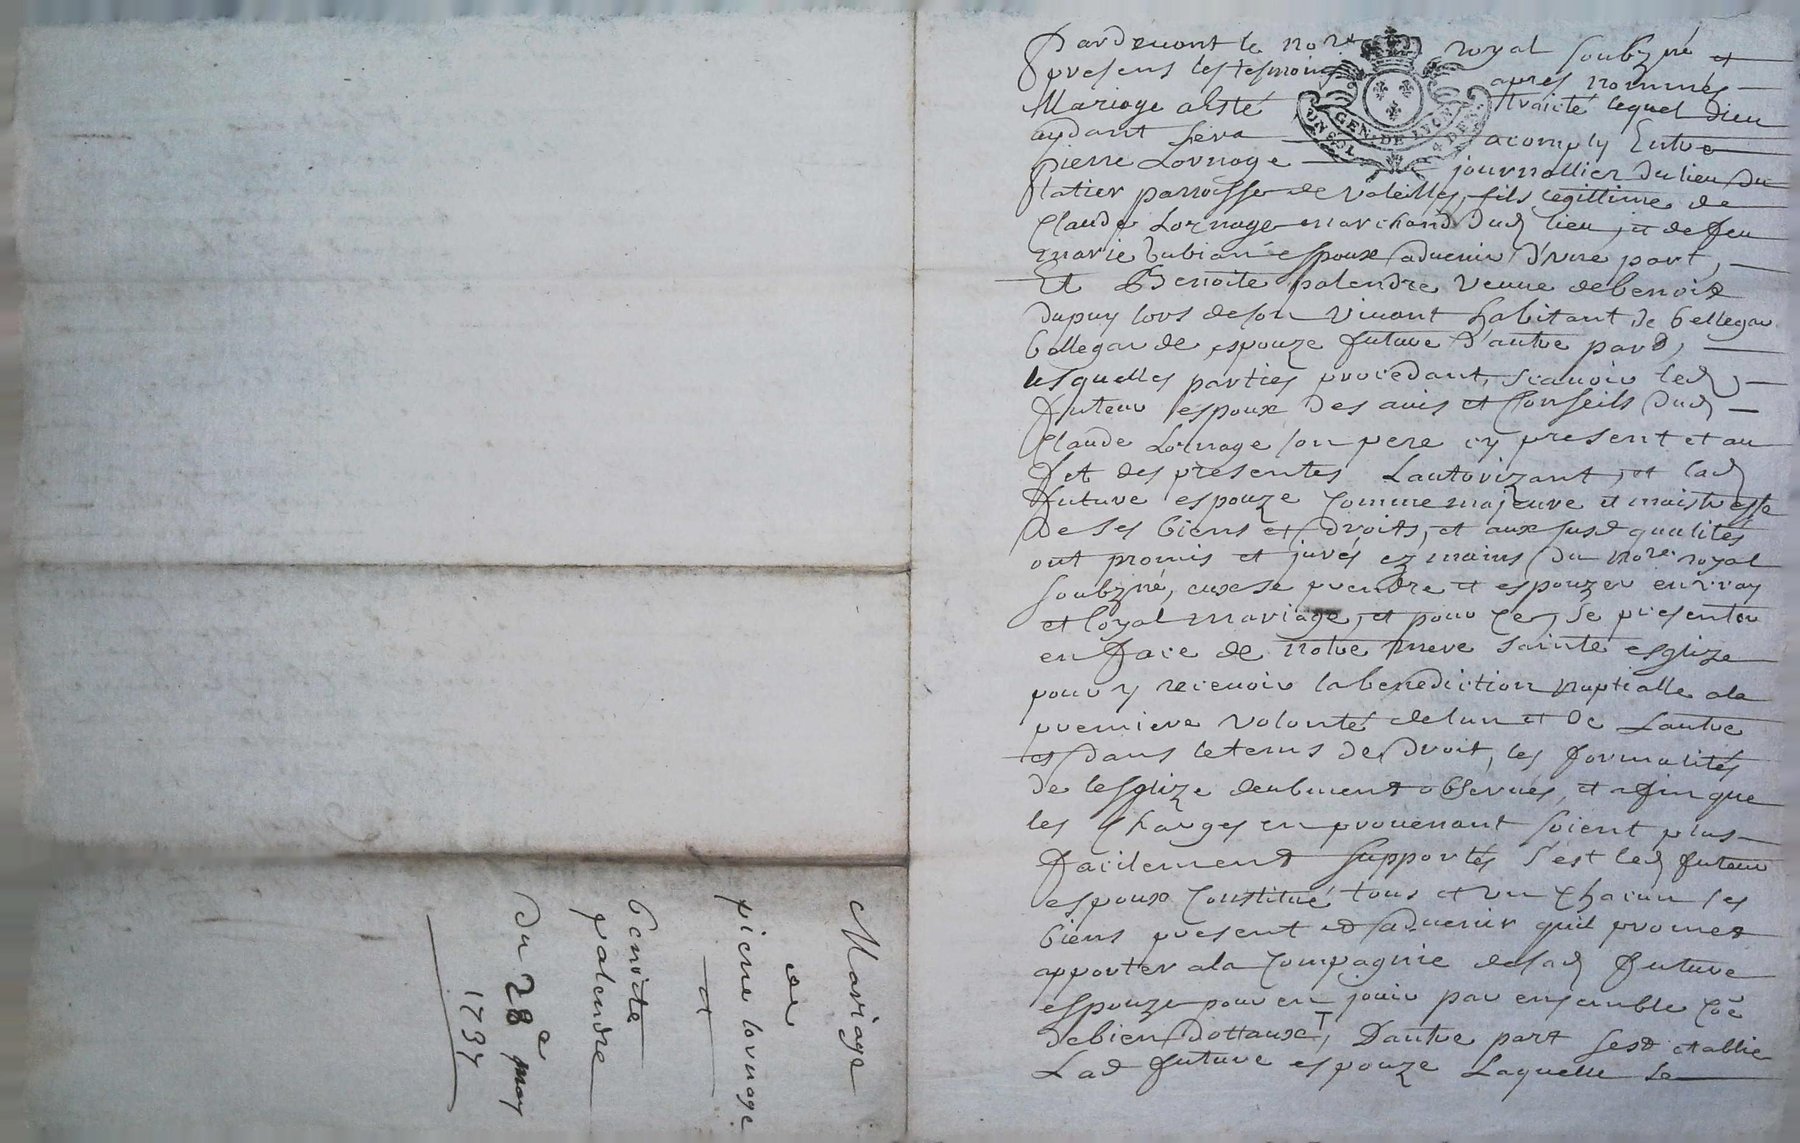 Pardevant le nore royal soubzné et
presens les tesmoins apres nommés
Mariage a esté traicté lequel Dieu
aydant sera acomply Entre
pierre Lornage journallier du lieu du
platier parroisse de valeilles, fils legittime de
Claude Lornage marchand dud lieu, et de feu
marie espoux advenir d'une part,
Et Benoite palendre veuve de benoist
dupuy lors de son vivant habitant de bellegar
bellegarde espouze future d'autre pard,
lesquelles parties procedant, scavoir led,
futeur espoux des avis et Conseils dud
Claude Lornage son pere cy present et au
fet des presentes Lautorizant, et lad
future espouze Comme majeure et maistresse
de ses biens et droits, et aux susd qualités
ont promis et jurés ez mains du nore royal
soubzné, eux se prendre et espouzer en vray
et loyal mariage, et pour ce, se presenter
en face de notre mere sainte esglize
pour y recevoir la benediction nuptialle a la
premiere volonté de lun et de Lautre
et dans le tems de droit, les formalités
de lesglize deubment observés, et afin que
les Charges en provenant soient plus
facilement supportés s'est led futeur
espoux Constitué tous et un chacun ses
biens present et advenir quil promet
apporter a la Compagnie de sad future
espouze pour en jouir par ensemble Coē
de bien dottaux, D'autre part sest establie
Lad future espouze Laquelle se
GEN. DE LYON
UN SOL 4 DEN.
Mariage
de
pierre lornage
et
benoite
palendre
Du 28e may
1737